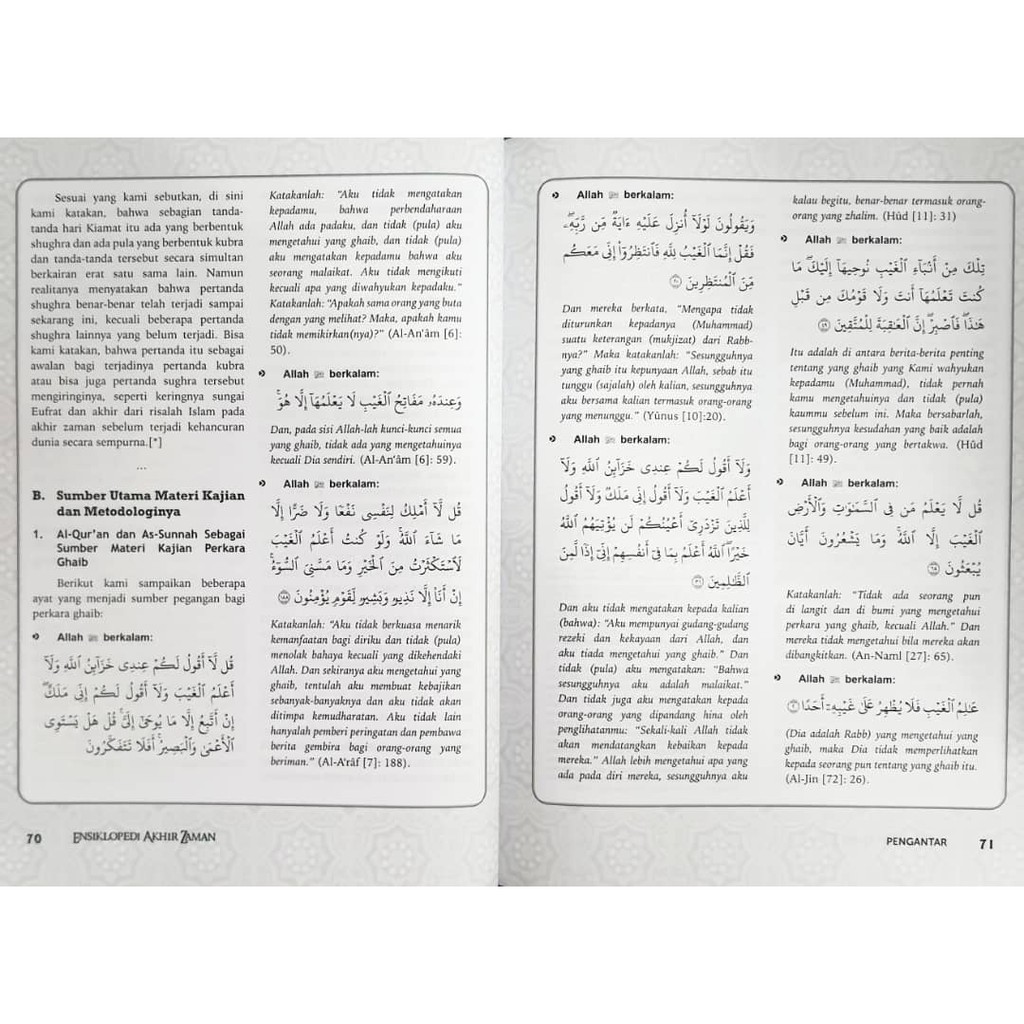 Sesuai yang kami sebutkan, di sini
kami katakan, bahwa sebagian tanda-
tanda hari Kiamat itu ada yang berbentuk
shughra dan ada pula yang berbentuk kubra
dan tanda-tanda tersebut secara simultan
berkairan erat satu sama lain. Namun
realitanya menyatakan bahwa pertanda
shughra benar-benar telah terjadi sampai
sekarang ini, kecuali beberapa pertanda
shughra lainnya yang belum terjadi. Bisa
kami katakan, bahwa pertanda itu sebagai
awalan bagi terjadinya pertanda kubra
atau bisa juga pertanda sughra tersebut
mengiringinya, seperti keringnya sungai
Eufrat dan akhir dari risalah Islam pada
akhir zaman sebelum terjadi kehancuran
dunia secara sempurna.[*]
...
B. Sumber Utama Materi Kajian
dan Metodologinya
1. Al-Qur'an dan As-Sunnah Sebagai
Sumber Materi Kajian Perkara
Ghaib
Berikut kami sampaikan beberapa
ayat yang menjadi sumber pegangan bagi
perkara ghaib:
Allah ﷻ berkalam:
قُل لَّآ أَقُولُ لَكُمْ عِندِى خَزَآئِنُ ٱللَّهِ وَلَآ
أَعْلَمُ ٱلْغَيْبَ وَلَآ أَقُولُ لَكُمْ إِنِّى مَلَكٌ ۖ
إِنْ أَتَّبِعُ إِلَّا مَا يُوحَىٰٓ إِلَىَّ ۚ قُلْ هَلْ يَسْتَوِى
ٱلْأَعْمَىٰ وَٱلْبَصِيرُ ۚ أَفَلَا تَتَفَكَّرُونَ
Katakanlah: "Aku tidak mengatakan
kepadamu, bahwa perbendaharaan
Allah ada padaku, dan tidak (pula) aku
mengetahui yang ghaib, dan tidak (pula)
aku mengatakan kepadamu bahwa aku
seorang malaikat. Aku tidak mengikuti
kecuali apa yang diwahyukan kepadaku."
Katakanlah: "Apakah sama orang yang buta
dengan yang melihat? Maka, apakah kamu
tidak memikirkan(nya)?" (Al-An'âm [6]:
50).
Allah ﷻ berkalam:
وَعِندَهُۥ مَفَاتِحُ ٱلْغَيْبِ لَا يَعْلَمُهَآ إِلَّا هُوَ ۚ
Dan, pada sisi Allah-lah kunci-kunci semua
yang ghaib, tidak ada yang mengetahuinya
kecuali Dia sendiri. (Al-An'âm [6]: 59).
Allah ﷻ berkalam:
قُل لَّآ أَمْلِكُ لِنَفْسِى نَفْعًا وَلَا ضَرًّا إِلَّا
مَا شَآءَ ٱللَّهُ ۚ وَلَوْ كُنتُ أَعْلَمُ ٱلْغَيْبَ
لَٱسْتَكْثَرْتُ مِنَ ٱلْخَيْرِ وَمَا مَسَّنِىَ ٱلسُّوٓءُ ۚ
إِنْ أَنَا۠ إِلَّا نَذِيرٌ وَبَشِيرٌ لِّقَوْمٍ يُؤْمِنُونَ ١٨٨
Katakanlah: "Aku tidak berkuasa menarik
kemanfaatan bagi diriku dan tidak (pula)
menolak bahaya kecuali yang dikehendaki
Allah. Dan sekiranya aku mengetahui yang
ghaib, tentulah aku membuat kebajikan
sebanyak-banyaknya dan aku tidak akan
ditimpa kemudharatan. Aku tidak lain
hanyalah pemberi peringatan dan pembawa
berita gembira bagi orang-orang yang
beriman." (Al-A'râf [7]: 188).
70 ENSIKLOPEDI AKHIR ZAMAN
Allah ﷻ berkalam:
وَيَقُولُونَ لَوْلَآ أُنزِلَ عَلَيْهِ ءَايَةٌ مِّن رَّبِّهِۦ ۖ
فَقُلْ إِنَّمَا ٱلْغَيْبُ لِلَّهِ فَٱنتَظِرُوٓا۟ إِنِّى مَعَكُم
مِّنَ ٱلْمُنتَظِرِينَ ٢٠
Dan mereka berkata, "Mengapa tidak
diturunkan kepadanya (Muhammad)
suatu keterangan (mukjizat) dari Rabb-
nya?" Maka katakanlah: "Sesungguhnya
yang ghaib itu kepunyaan Allah, sebab itu
tunggu (sajalah) oleh kalian, sesungguhnya
aku bersama kalian termasuk orang-orang
yang menunggu." (Yûnus [10]:20).
Allah ﷻ berkalam:
وَلَآ أَقُولُ لَكُمْ عِندِى خَزَآئِنُ ٱللَّهِ وَلَآ
أَعْلَمُ ٱلْغَيْبَ وَلَآ أَقُولُ إِنِّى مَلَكٌ وَلَآ أَقُولُ
لِلَّذِينَ تَزْدَرِىٓ أَعْيُنُكُمْ لَن يُؤْتِيَهُمُ ٱللَّهُ
خَيْرًا ۖ ٱللَّهُ أَعْلَمُ بِمَا فِىٓ أَنفُسِهِمْ ۖ إِنِّىٓ إِذًا لَّمِنَ
ٱلظَّٰلِمِينَ ٣١
Dan aku tidak mengatakan kepada kalian
(bahwa): "Aku mempunyai gudang-gudang
rezeki dan kekayaan dari Allah, dan
aku tiada mengetahui yang ghaib." Dan
tidak (pula) aku mengatakan: "Bahwa
sesungguhnya aku adalah malaikat."
Dan tidak juga aku mengatakan kepada
orang-orang yang dipandang hina oleh
penglihatanmu: "Sekali-kali Allah tidak
akan mendatangkan kebaikan kepada
mereka." Allah lebih mengetahui apa yang
ada pada diri mereka, sesungguhnya aku
kalau begitu, benar-benar termasuk orang-
orang yang zhalim. (Hûd [11]: 31)
Allah ﷻ berkalam:
تِلْكَ مِنْ أَنۢبَآءِ ٱلْغَيْبِ نُوحِيهَآ إِلَيْكَ ۖ مَا
كُنتَ تَعْلَمُهَآ أَنتَ وَلَا قَوْمُكَ مِن قَبْلِ
هَٰذَا ۖ فَٱصْبِرْ ۖ إِنَّ ٱلْعَٰقِبَةَ لِلْمُتَّقِينَ ٤٩
Itu adalah di antara berita-berita penting
tentang yang ghaib yang Kami wahyukan
kepadamu (Muhammad), tidak pernah
kamu mengetahuinya dan tidak (pula)
kaummu sebelum ini. Maka bersabarlah,
sesungguhnya kesudahan yang baik adalah
bagi orang-orang yang bertakwa. (Hûd
[11]: 49).
Allah ﷻ berkalam:
قُل لَّا يَعْلَمُ مَن فِى ٱلسَّمَٰوَٰتِ وَٱلْأَرْضِ
ٱلْغَيْبَ إِلَّا ٱللَّهُ ۚ وَمَا يَشْعُرُونَ أَيَّانَ
يُبْعَثُونَ ٦٥
Katakanlah: "Tidak ada seorang pun
di langit dan di bumi yang mengetahui
perkara yang ghaib, kecuali Allah." Dan
mereka tidak mengetahui bila mereka akan
dibangkitkan. (An-Naml [27]: 65).
Allah ﷻ berkalam:
عَٰلِمُ ٱلْغَيْبِ فَلَا يُظْهِرُ عَلَىٰ غَيْبِهِۦٓ أَحَدًا ٢٦
(Dia adalah Rabb) yang mengetahui yang
ghaib, maka Dia tidak memperlihatkan
kepada seorang pun tentang yang ghaib itu.
(Al-Jin [72]: 26).
PENGANTAR 71